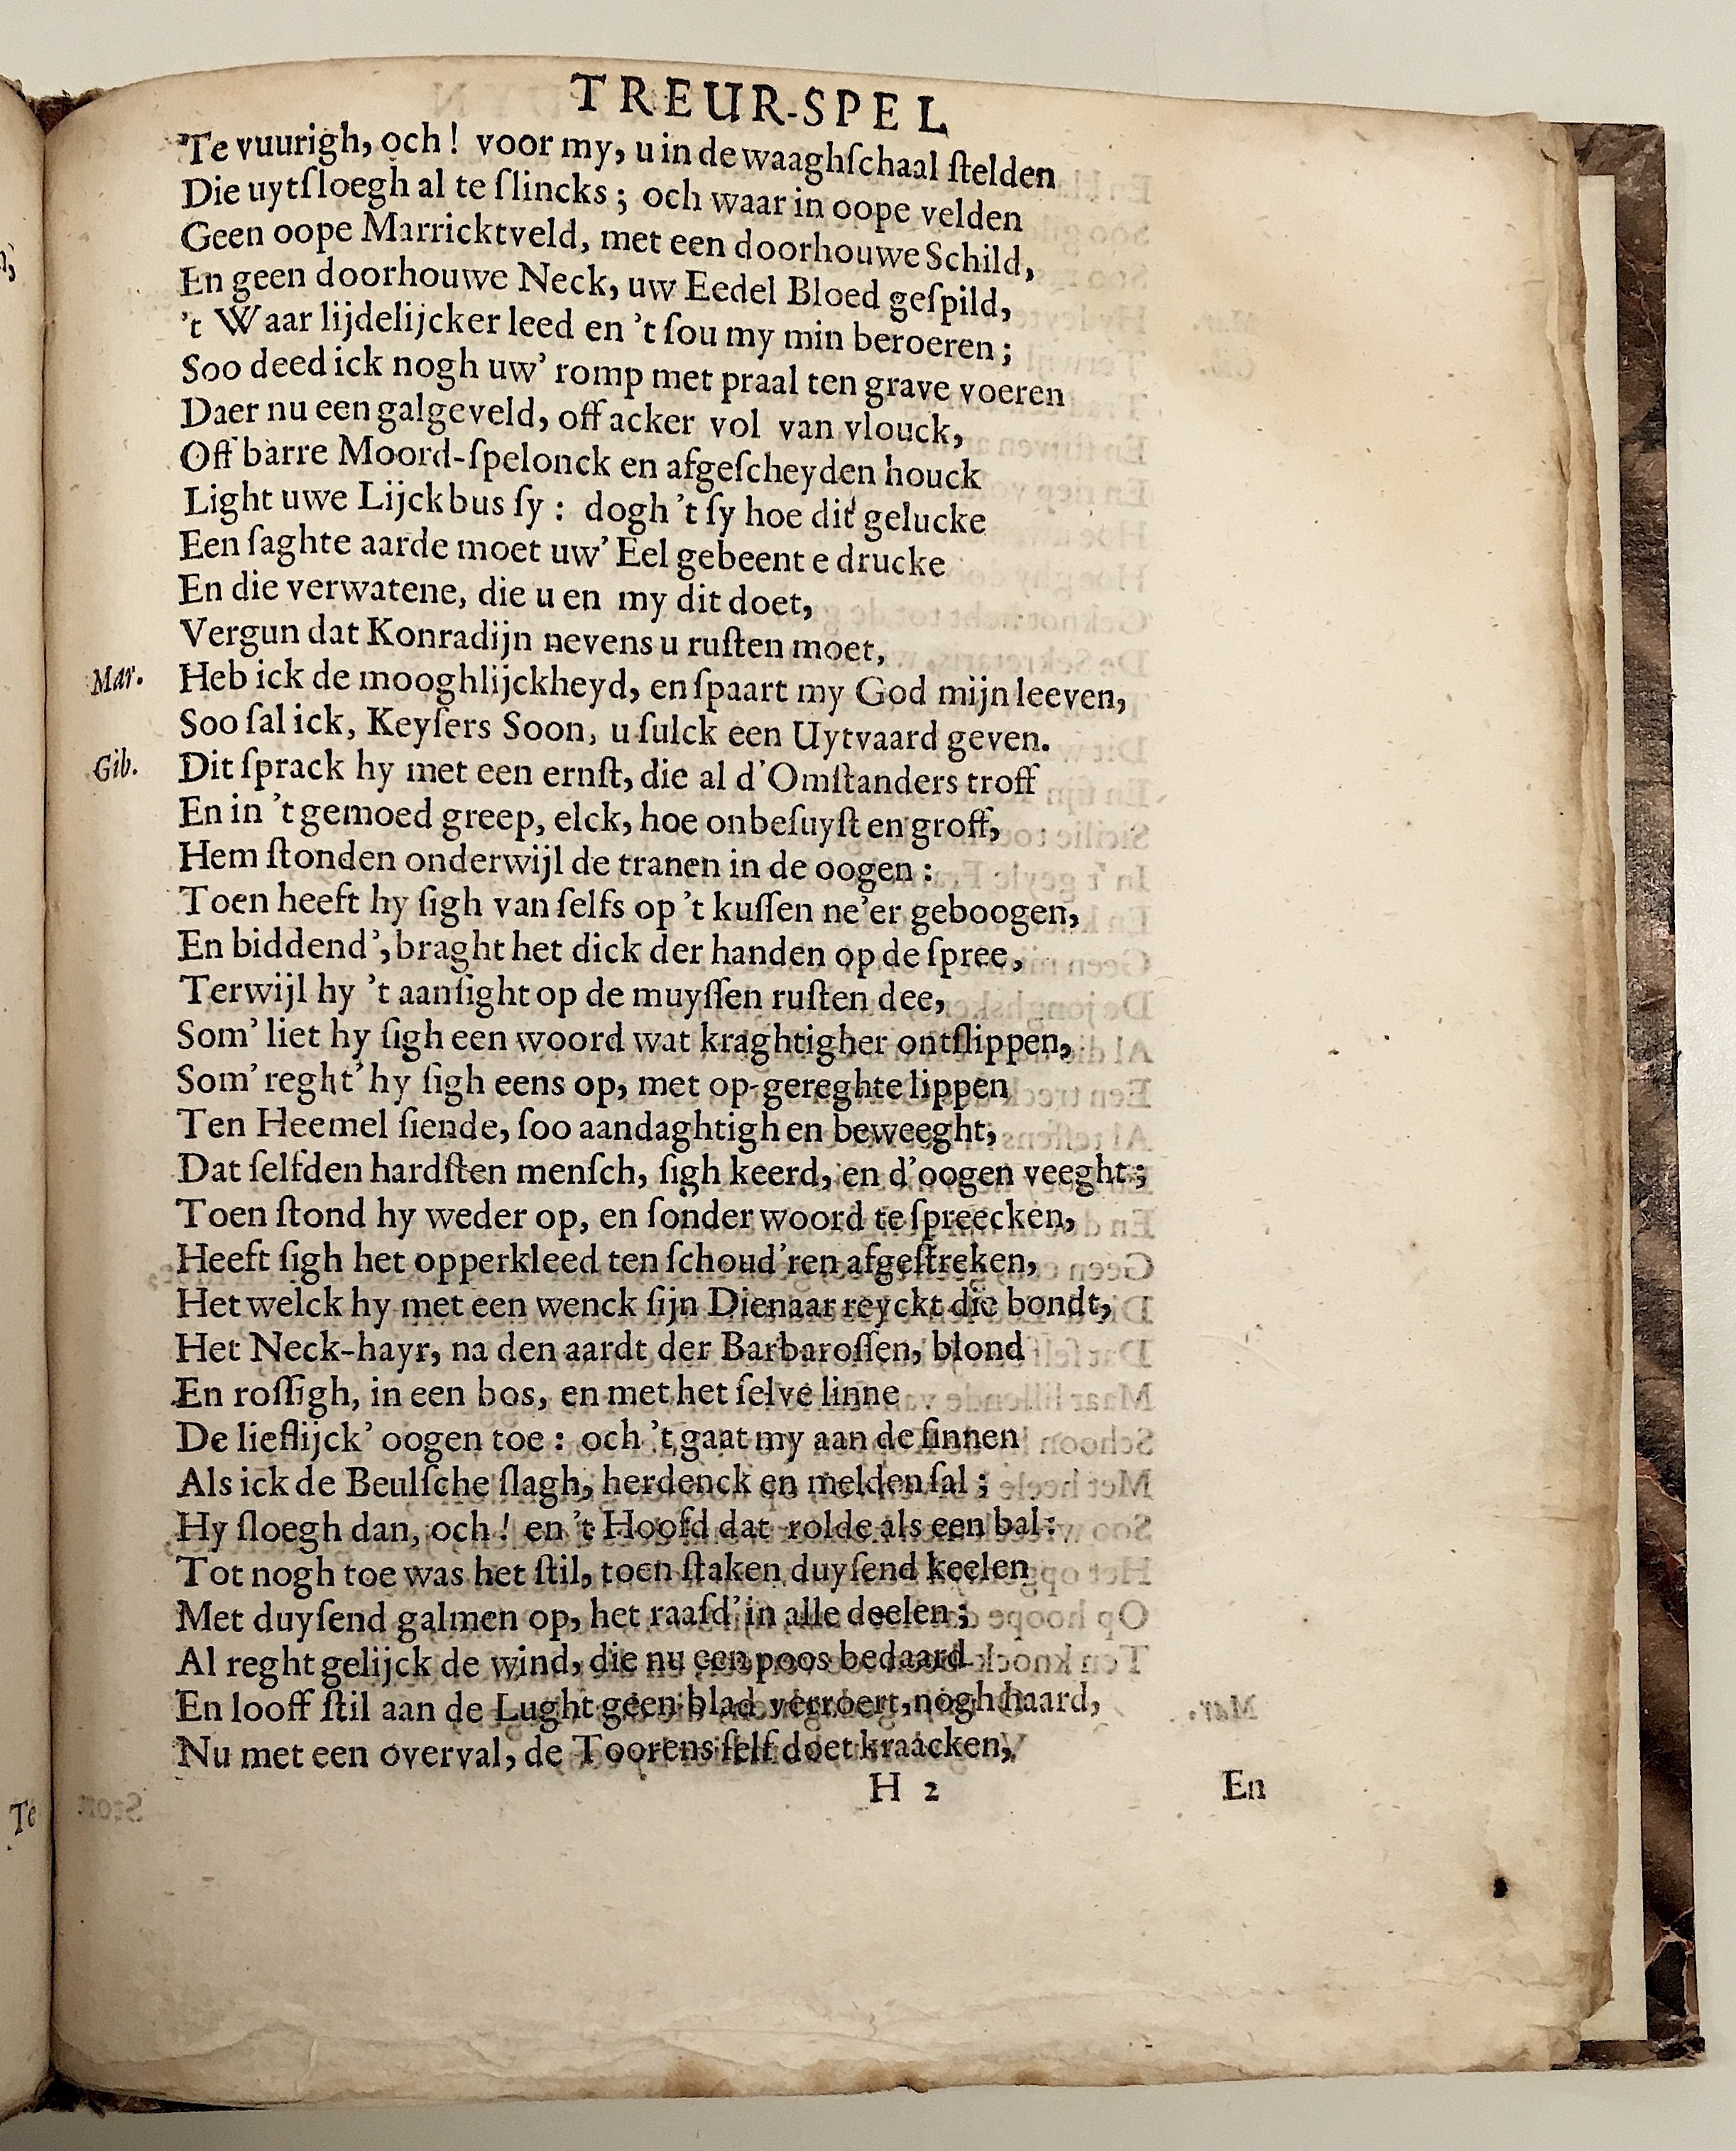 TREUR-SPEL
Te vuurigh, och! voor my, u in de waaghſchaal ſtelden
Die uytſloegh al te ſlincks; och waar in oope velden
Geen oope Marricktveld, met een doorhouwe Schild,
En geen doorhouwe Neck, uw Eedel Bloed geſpild,
't Waar lijdelijcker leed en 't ſou my min beroeren;
Soo deed ick nogh uw' romp met praal ten grave voeren
Daer nu een galgeveld, off acker vol van vlouck,
Off barre Moord-ſpelonck en afgeſcheyden houck
Light uwe Lijckbus ſy: dogh 't ſy hoe dit gelucke
Een ſaghte aarde moet uw' Eel gebeent e drucke
En die verwatene, die u en my dit doet,
Vergun dat Konradijn nevens u ruſten moet,
Mar. Heb ick de mooghlijckheyd, en ſpaart my God mijn leeven,
Soo ſal ick, Keyſers Soon, u ſulck een Uytvaard geven.
Gib. Dit ſprack hy met een ernſt, die al d'Omſtanders troff
En in 't gemoed greep, elck, hoe onbeſuyſt en groff,
Hem ſtonden onderwijl de tranen in de oogen:
Toen heeft hy ſigh van ſelfs op 't kuſſen ne'er geboogen,
En biddend', braght het dick der handen op de ſpree,
Terwijl hy 't aanſight op de muyſſen ruſten dee,
Som' liet hy ſigh een woord wat kraghtigher ontſlippen,
Som' reght' hy ſigh eens op, met op-gereghte lippen
Ten Heemel ſiende, ſoo aandaghtigh en beweeght,
Dat ſelfden hardſten menſch, ſigh keerd, en d'oogen veeght;
Toen ſtond hy weder op, en ſonder woord te ſpreecken,
Heeft ſigh het opperkleed ten ſchoud'ren afgeſtreken,
Het welck hy met een wenck ſijn Dienaar reyckt die bondt,
Het Neck-hayr, na den aardt der Barbaroſſen, blond
En roſſigh, in een bos, en met het ſelve linne
De lieflijck' oogen toe: och 't gaat my aan de ſinnen
Als ick de Beulſche ſlagh, herdenck en melden ſal;
Hy ſloegh dan, och! en 't Hoofd dat rolde als een bal:
Tot nogh toe was het ſtil, toen ſtaken duyſend keelen
Met duyſend galmen op, het raaſd' in alle deelen;
Al reght gelijck de wind, die nu een poos bedaard
En looff ſtil aan de Lught geen blad verroert, nogh haard,
Nu met een overval, de Toorens ſelf doet kraacken,
H 2 En
Te